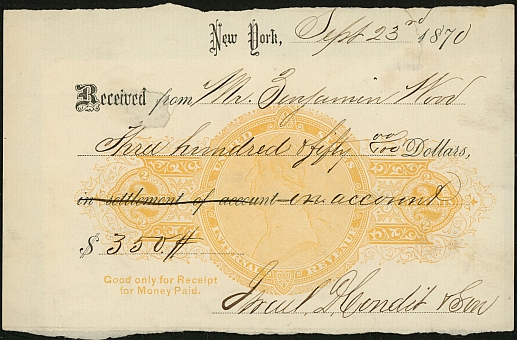 New York, Sept 23rd 1870
Received from Mr. Benjamin Wood
Three hundred & fifty 00/100 Dollars,
in settlement of account on account
$ 350.#
UNITED STATES
INTERNAL REVENUE
Good only for Receipt
for Money Paid.
Condit & Son